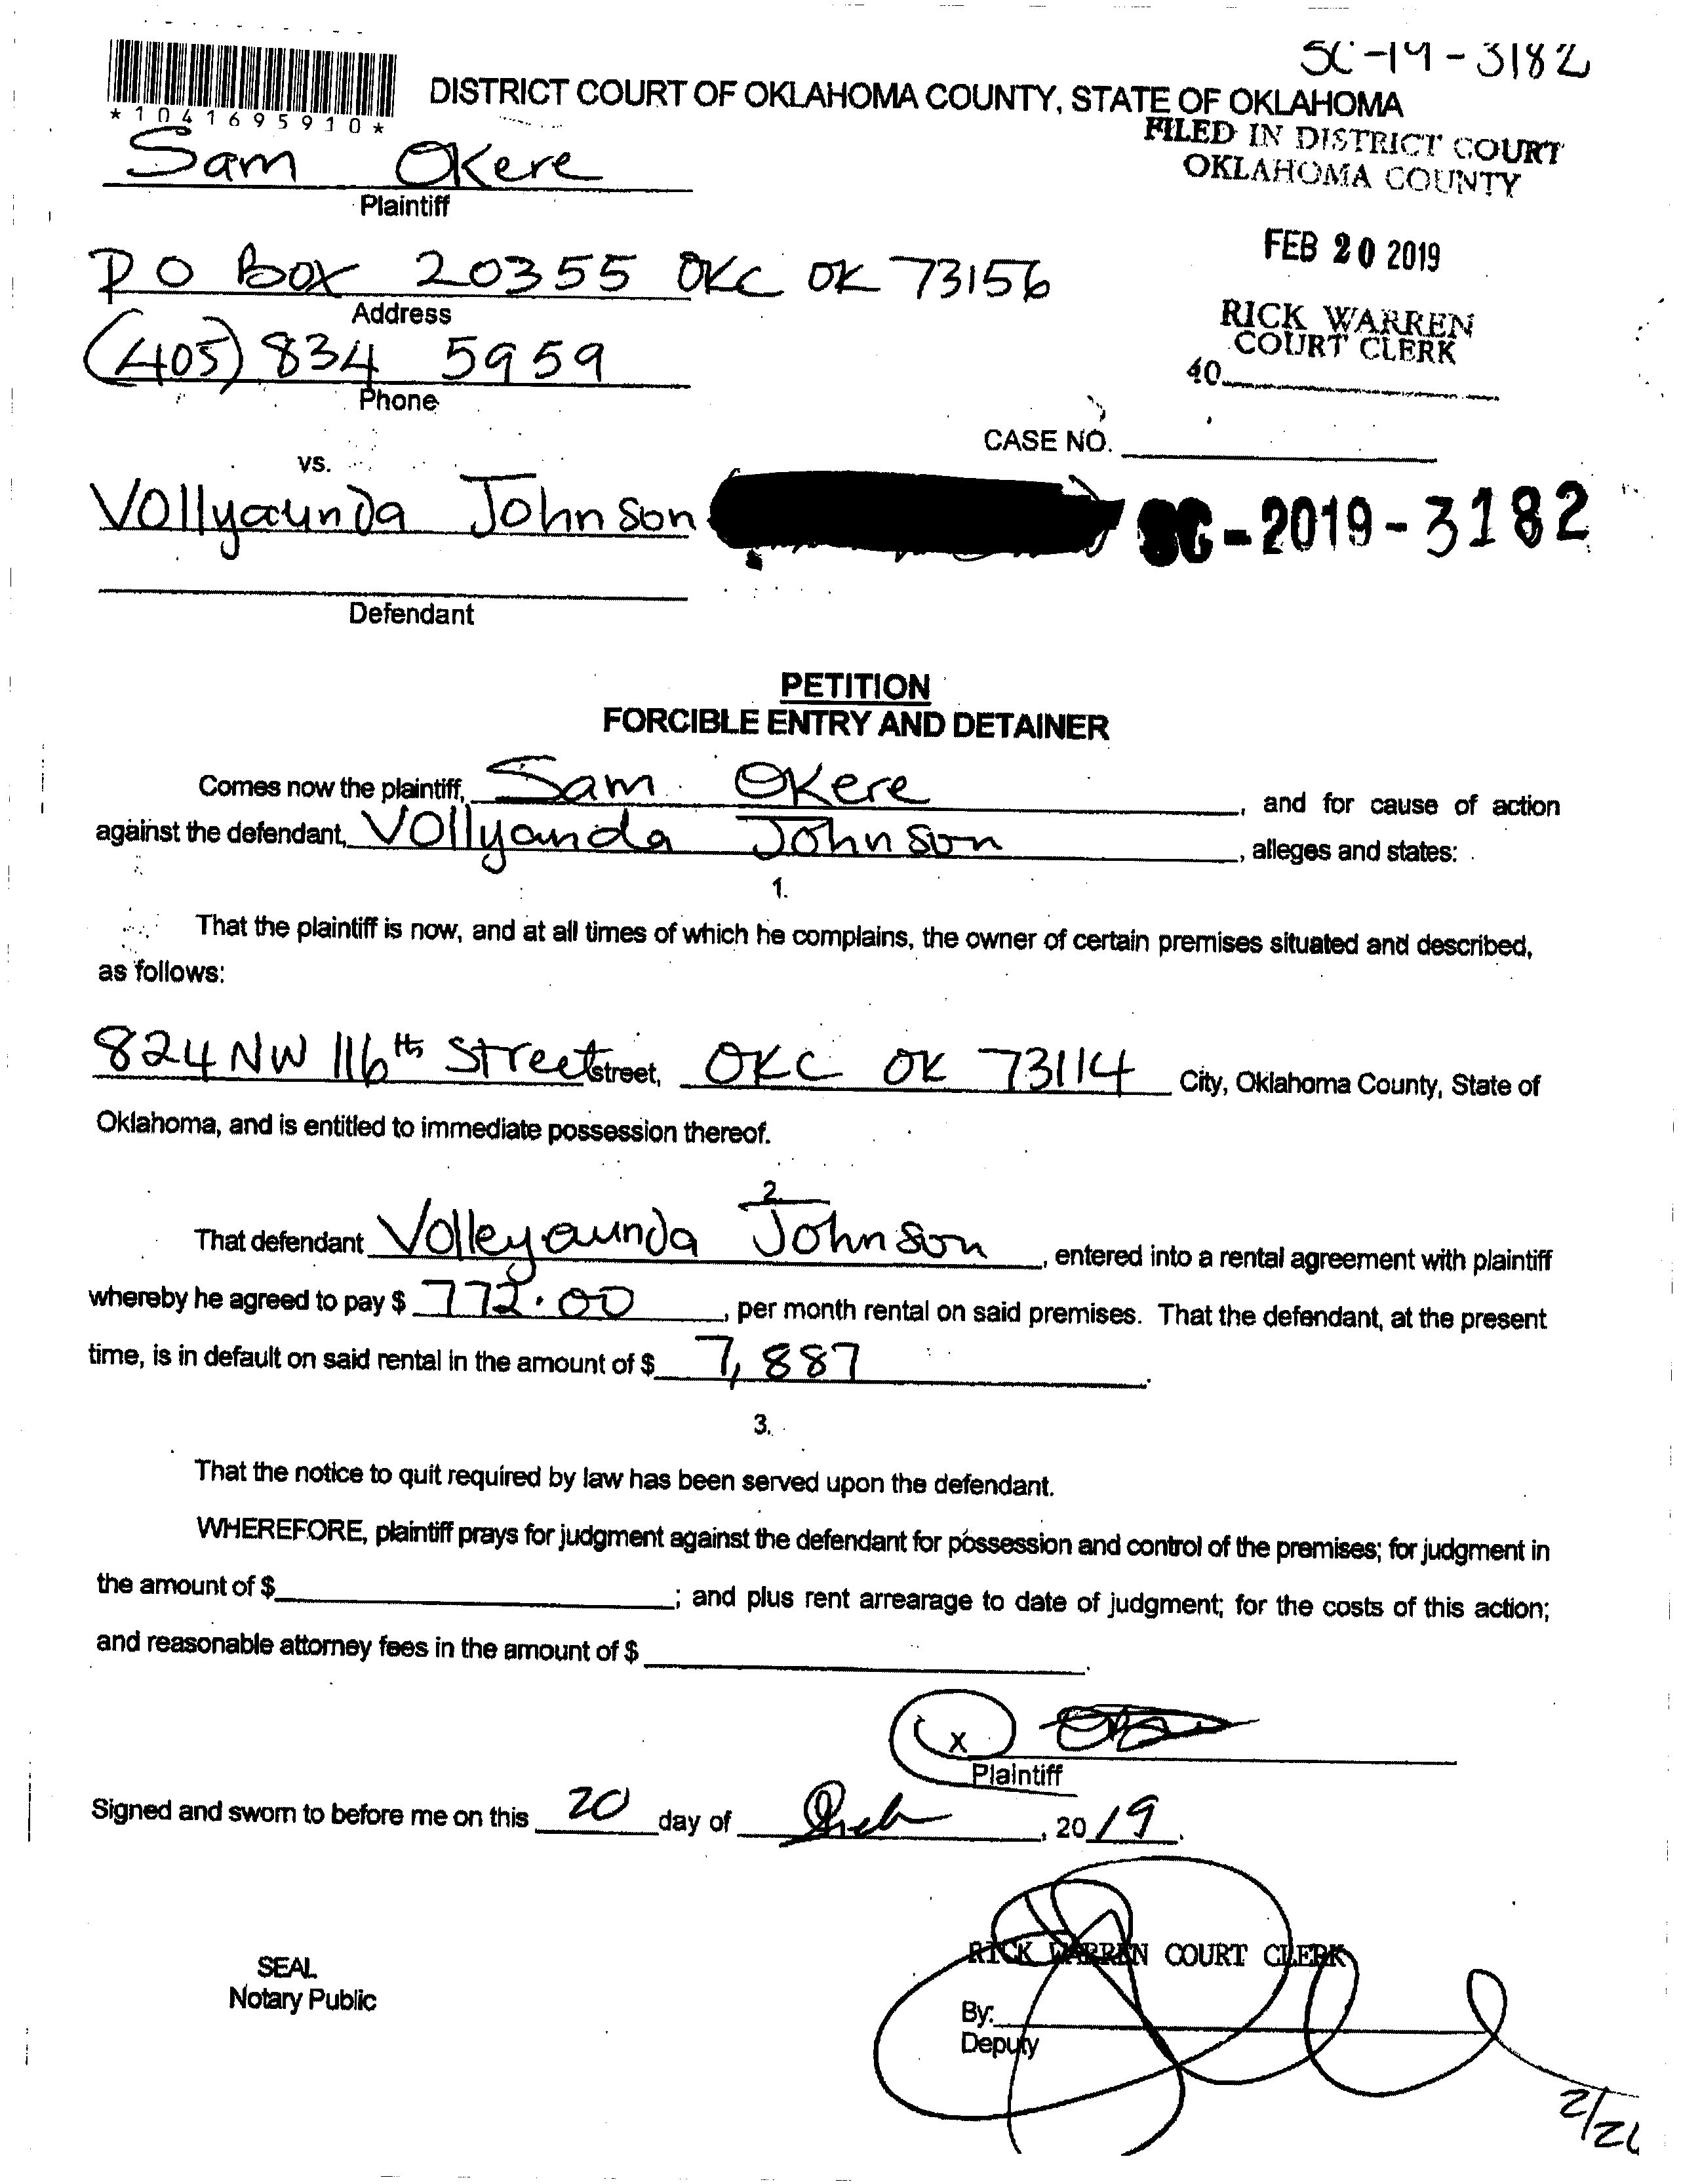 SC-19-3182
*1041695910*
DISTRICT COURT OF OKLAHOMA COUNTY, STATE OF OKLAHOMA
FILED IN DISTRICT COURT
OKLAHOMA COUNTY
Sam Okere
Plaintiff
FEB 20 2019
PO Box 20355 OKC OK 73156
Address
RICK WARREN
COURT CLERK
40
(405) 834 5959
Phone
CASE NO.
vs.
Vollyaunda Johnson
SC-2019-3182
Defendant
PETITION
FORCIBLE ENTRY AND DETAINER
Comes now the plaintiff, Sam Okere, and for cause of action
against the defendant, Vollyanda Johnson, alleges and states:
1.
That the plaintiff is now, and at all times of which he complains, the owner of certain premises situated and described,
as follows:
824 NW 116th Street street, OKC OK 73114 City, Oklahoma County, State of
Oklahoma, and is entitled to immediate possession thereof.
2.
That defendant Volleyaunda Johnson, entered into a rental agreement with plaintiff
whereby he agreed to pay $ 772.00, per month rental on said premises. That the defendant, at the present
time, is in default on said rental in the amount of $ 7,887.
3.
That the notice to quit required by law has been served upon the defendant.
WHEREFORE, plaintiff prays for judgment against the defendant for possession and control of the premises; for judgment in
the amount of $ ; and plus rent arrearage to date of judgment; for the costs of this action;
and reasonable attorney fees in the amount of $ .
X
Plaintiff
Signed and sworn to before me on this 20 day of Feb, 2019.
RICK WARREN COURT CLERK
SEAL
Notary Public
By:
Deputy